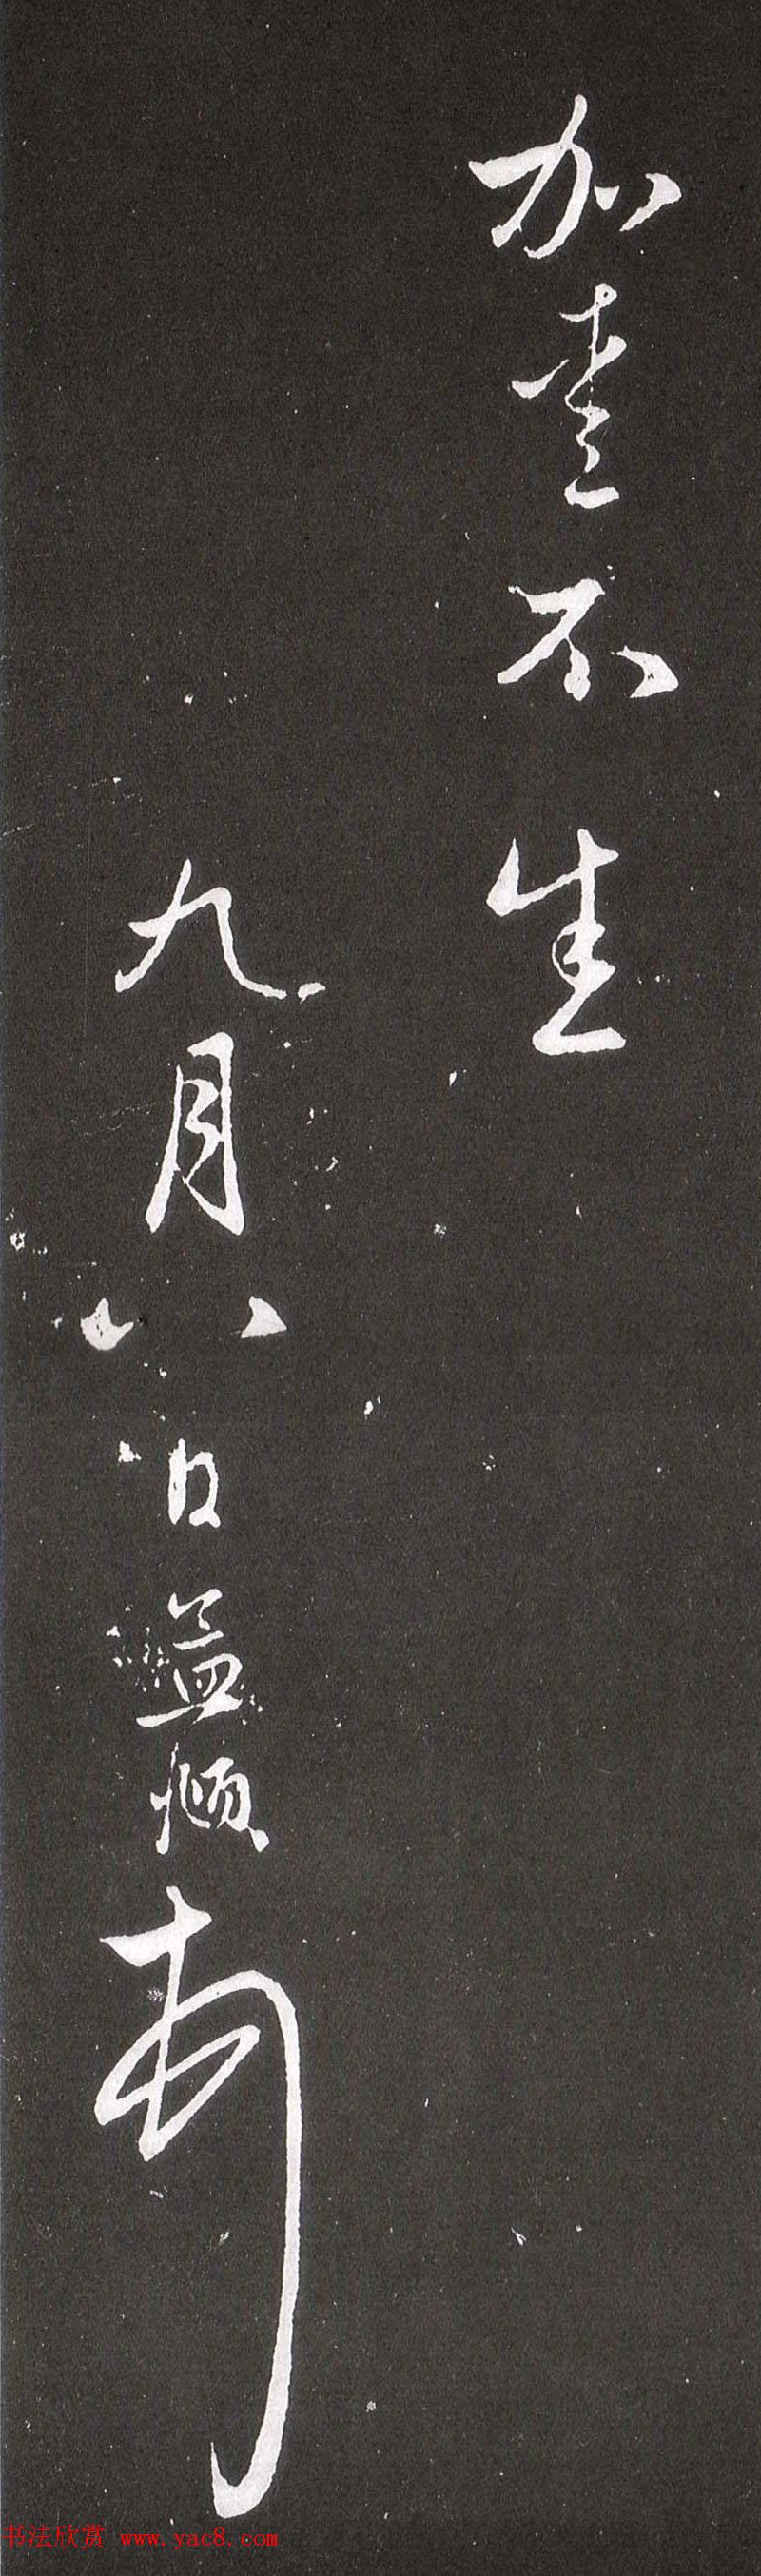 加不生
九月八日益頓首
书法欣赏 www.yac8.com